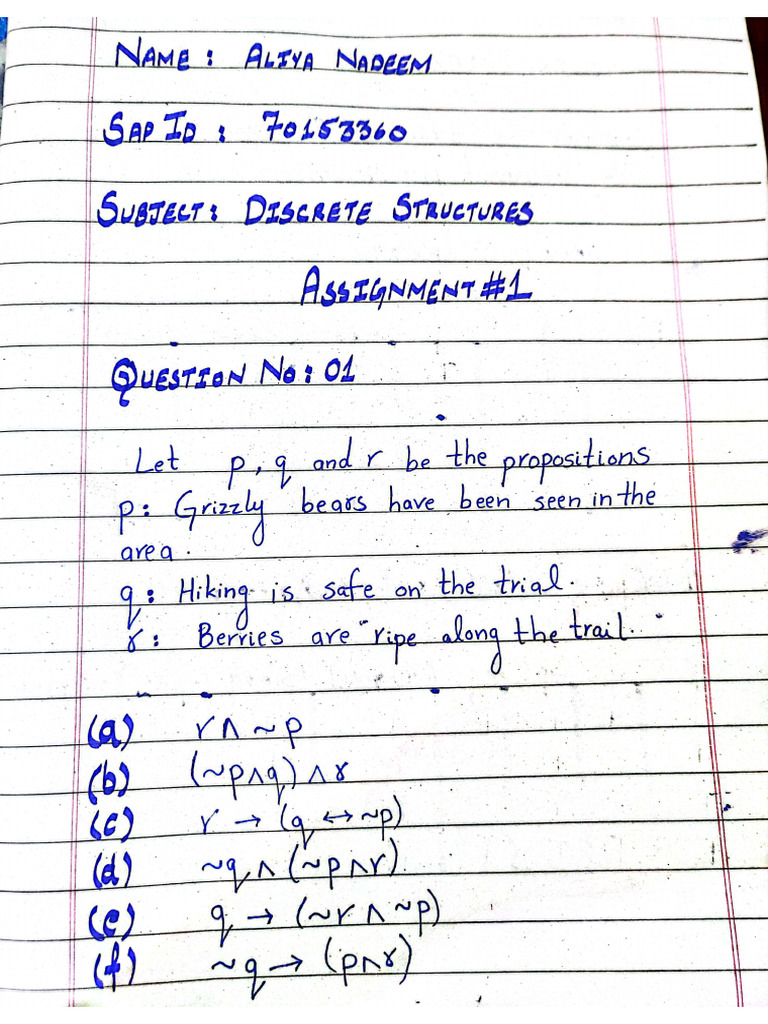 NAME: ALIYA NADEEM
SAP ID: 70153360
SUBJECT: DISCRETE STRUCTURES
ASSIGNMENT #1
QUESTION NO: 01
Let p, q and r be the propositions
p: Grizzly bears have been seen in the
area.
q: Hiking is safe on the trial.
r: Berries are ripe along the trail.
(a) r ∧ ~p
(b) (~p ∧ q) ∧ r
(c) r → (q ↔ ~p)
(d) ~q ∧ (~p ∧ r)
(e) q → (~r ∧ ~p)
(f) ~q → (p ∧ r)